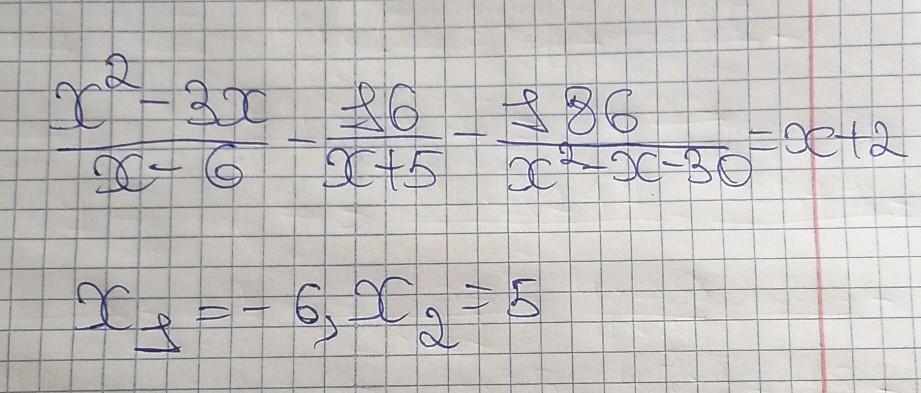 x² - 3x / x - 6 - 16 / x + 5 - 186 / x² - x - 30 = x + 2
x₁ = - 6, x₂ = 5